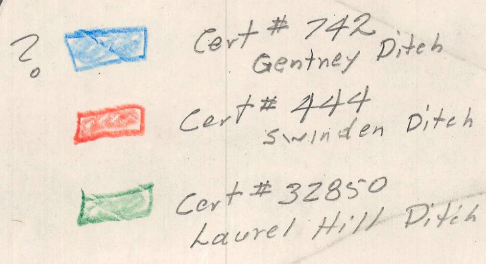 ? Cert # 742
Gentney Ditch
Cert # 444
Swinden Ditch
Cert # 32850
Laurel Hill Ditch